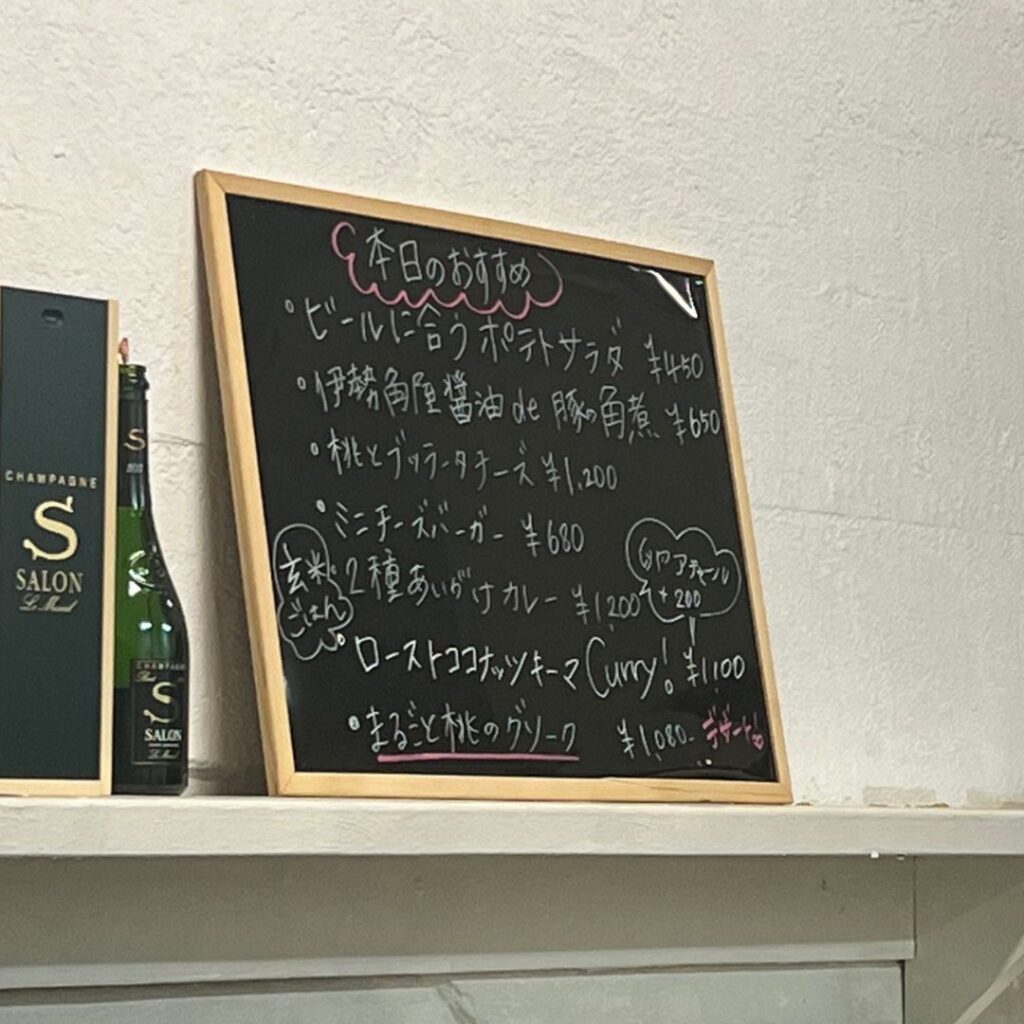 本日のおすすめ
ビールに合うポテトサラダ ¥450
伊勢角屋醤油 de 豚の角煮 ¥650
桃とブッラータチーズ ¥1,200
ミニチーズバーガー ¥680
玄米ごはん
2種あいがけカレー ¥1,200
アチャール
+200
ローストココナッツキーマ Curry! ¥1,100
まるごと桃のグソーク ¥1,080- デザート
CHAMPAGNE
S
SALON
Le Mesnil
S
CHAMPAGNE
S
SALON